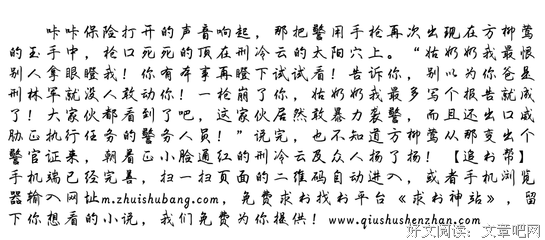 咔咔保险打开的声音响起，那把警用手枪再次出现在方柳莺
的玉手中，枪口死死的顶在刑冷云的太阳穴上。“姑奶奶我最恨
别人拿眼瞪我！你有本事再瞪下试试看！告诉你，别以为你爸是
刑林军就没人敢动你！一枪崩了你，姑奶奶我最多写个报告就成
了！大家伙都看到了吧，这家伙居然敢暴力袭警，而且还出口威
胁正执行任务的警务人员！”说完，也不知道方柳莺从那变出个
警官证来，朝着正小脸通红的刑冷云及众人扬了扬！【追书帮】
手机端已经完善，扫一扫页面的二维码自动进入，或者手机浏览
器输入网址m.zhuishubang.com，免费求书找书平台《求书神站》，留
下你想看的小说，我们免费为你提供！www.qiushushenzhan.com
好文阅读：文章吧网